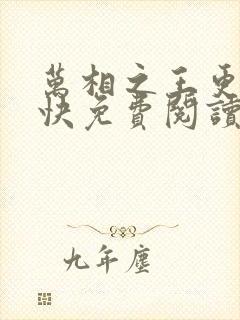 萬相之王更
快免費閱讀
九年塵